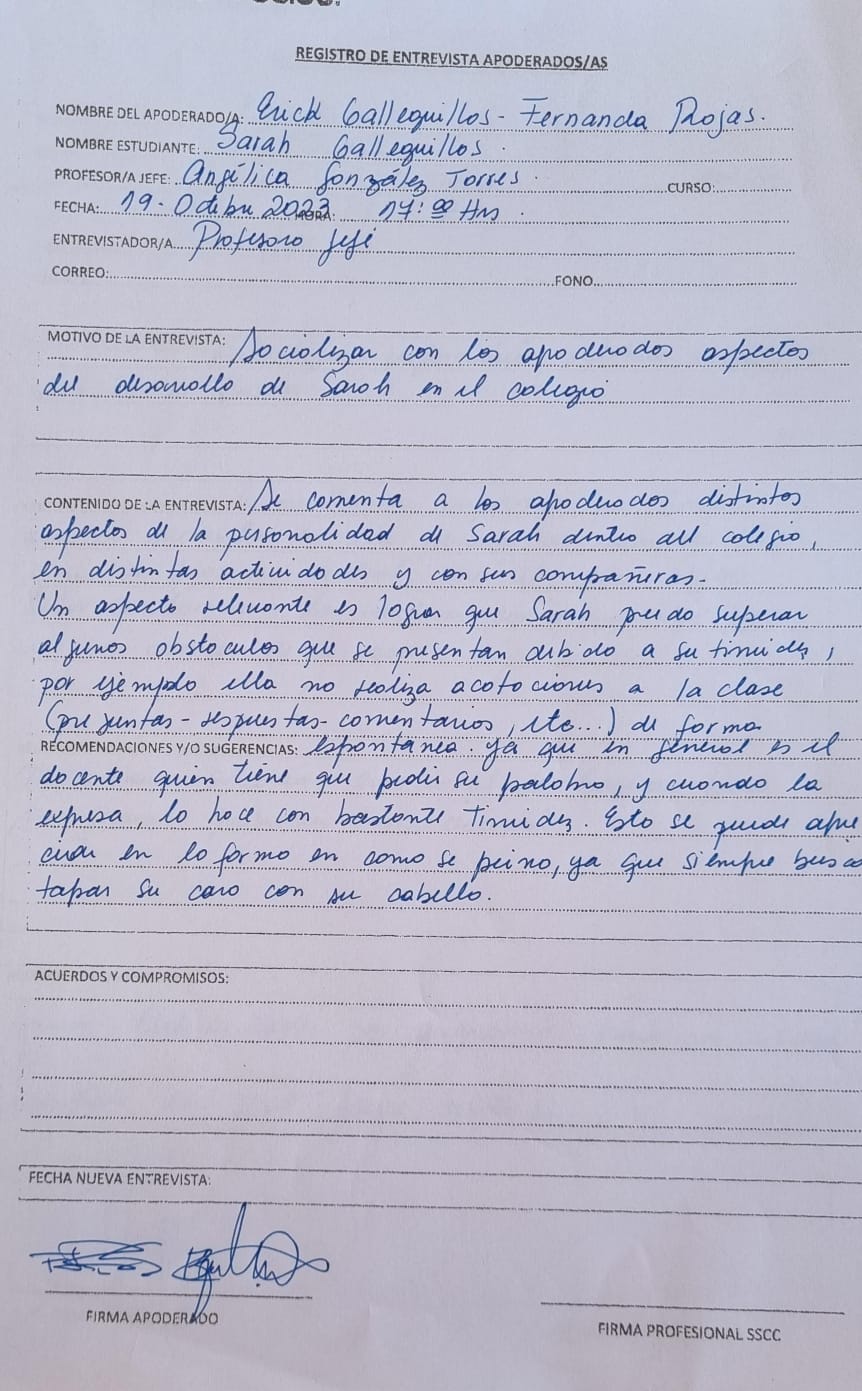 REGISTRO DE ENTREVISTA APODERADOS/AS
NOMBRE DEL APODERADO/A: Erick Galleguillos - Fernanda Rojas.
NOMBRE ESTUDIANTE: Sarah Galleguillos.
PROFESOR/A JEFE: Angélica González Torres. CURSO:
FECHA: 19-Octubre 2023 HORA: 17:00 Hrs.
ENTREVISTADOR/A Profesora Jefe
CORREO: FONO
MOTIVO DE LA ENTREVISTA: Socializar con los apoderados aspectos
del desarrollo de Sarah en el colegio
CONTENIDO DE LA ENTREVISTA: Se comenta a los apoderados distintos
aspectos de la personalidad de Sarah dentro del colegio,
en distintas actividades y con sus compañeras.
Un aspecto relevante es lograr que Sarah pueda superar
algunos obstaculos que se presentan debido a su timidez,
por ejemplo ella no realiza acotaciones a la clase
(preguntas - respuestas - comentarios, etc...) de forma
RECOMENDACIONES Y/O SUGERENCIAS: espontánea. ya que en general es el
docente quien tiene que pedir su palabra, y cuando la
expresa, lo hace con bastante timidez. Esto se puede apre
ciar en la forma en como se peina, ya que siempre busca
tapar su cara con su cabello.
ACUERDOS Y COMPROMISOS:
FECHA NUEVA ENTREVISTA:
FIRMA APODERADO
FIRMA PROFESIONAL SSCC